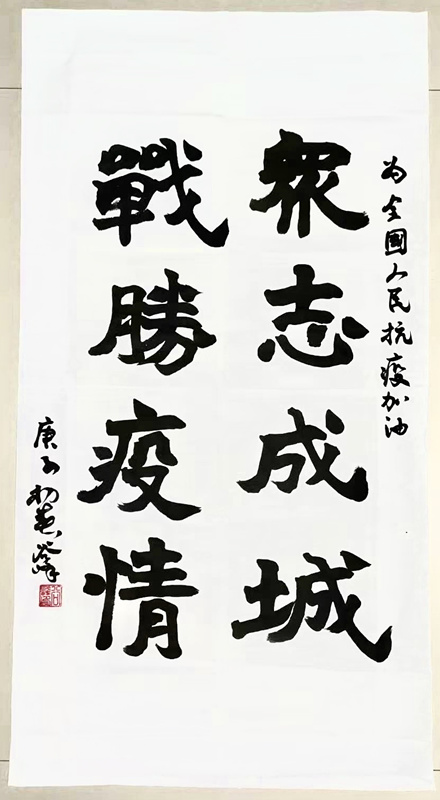 为全國人民抗疫加油
眾志成城
戰勝疫情
庚子